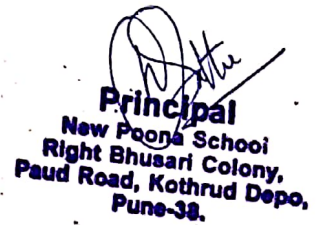 Principal
New Poona School
Right Bhusari Colony,
Paud Road, Kothrud Depo,
Pune-38.